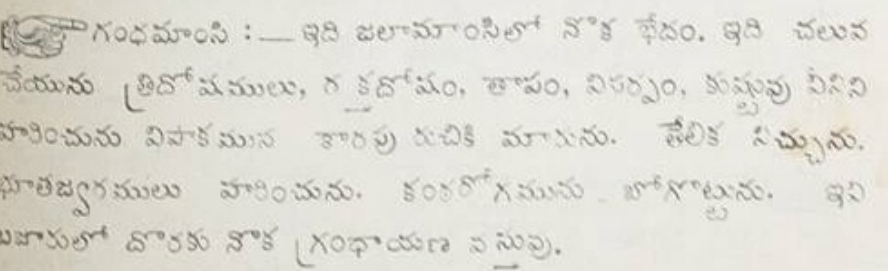 గంధమాంసి :— ఇది జలామాంసిలో నొక భేదం. ఇది చలువ
చేయును త్రిదోషములు, రక్తదోషం, తాపం, విసర్పం, కుష్టువు వీనిని
హరించును విపాకమున కారపు రుచికి మారును. తేలిక నిచ్చును.
భూతజ్వరములు హరించును. కంఠరోగమును బోగొట్టును. ఇది
బజారులో దొరకు నొక గ్రంధాయణ వస్తువు.